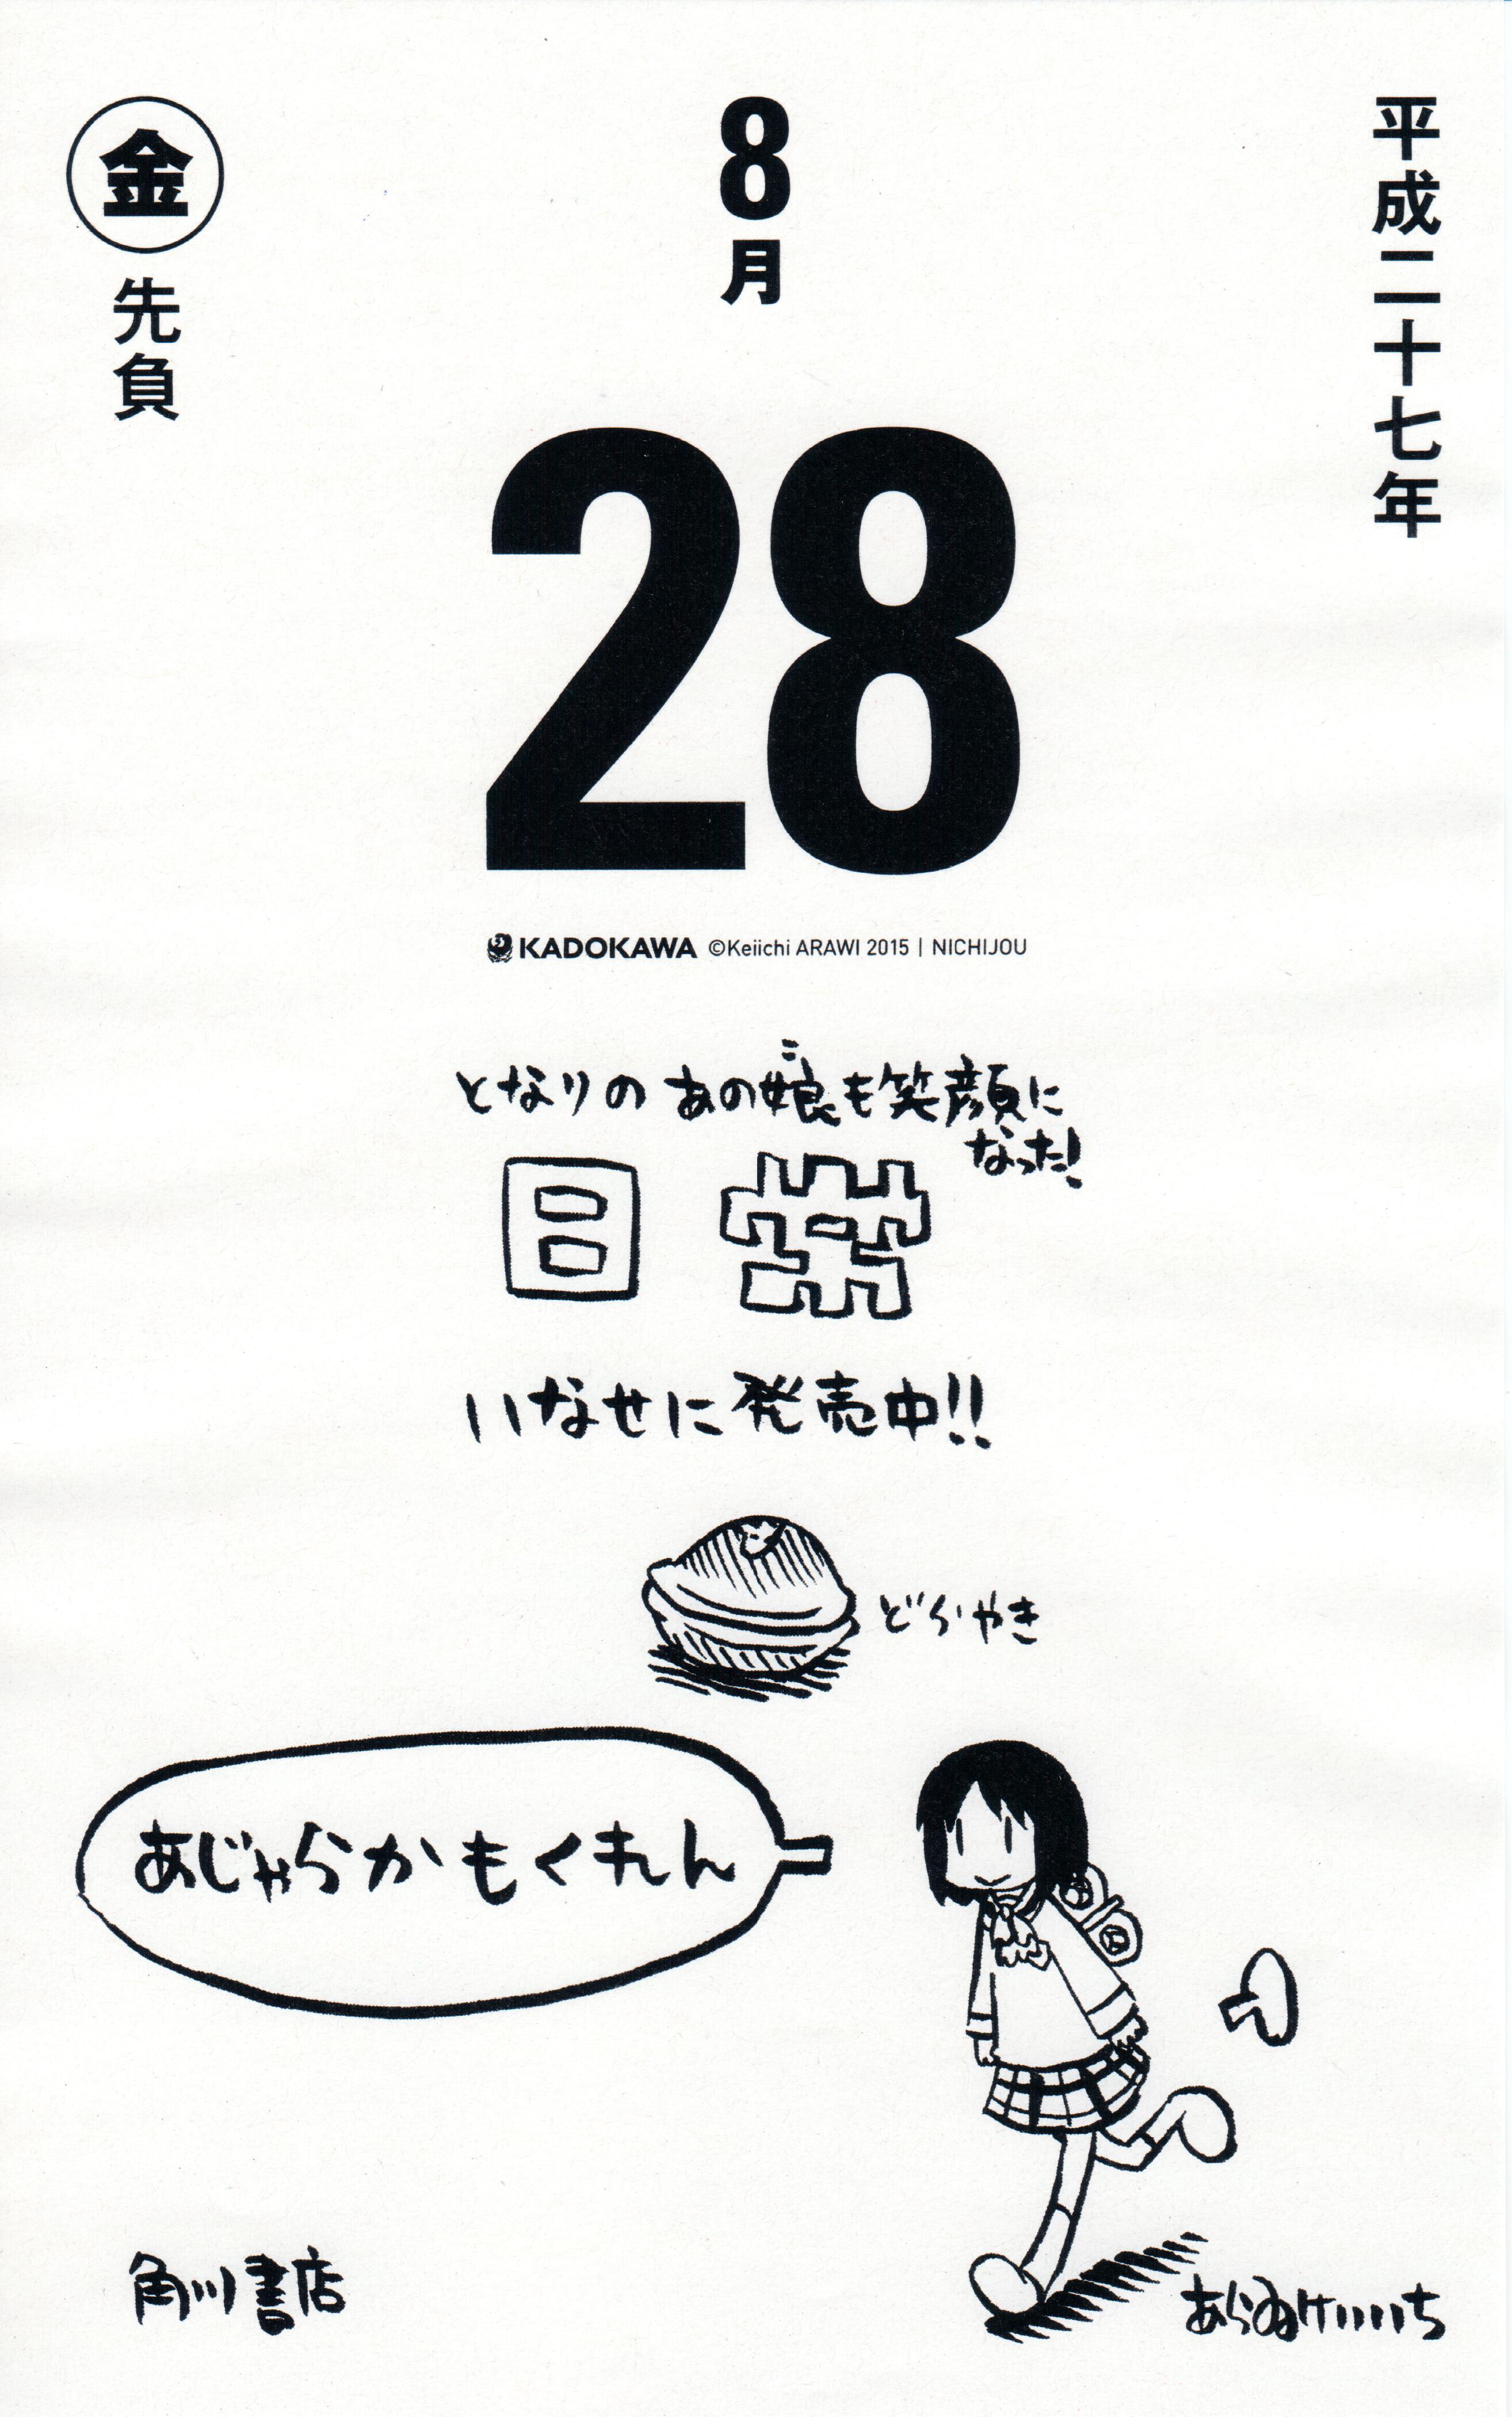 平成二十七年
8月
金
先負
28
KADOKAWA ©Keiichi ARAWI 2015 | NICHIJOU
となりのあの娘も笑顔に
こ
なった!
日常
いなせに発売中!!
どらやき
あじゃらかもくれん
角川書店
あらゐけいいち